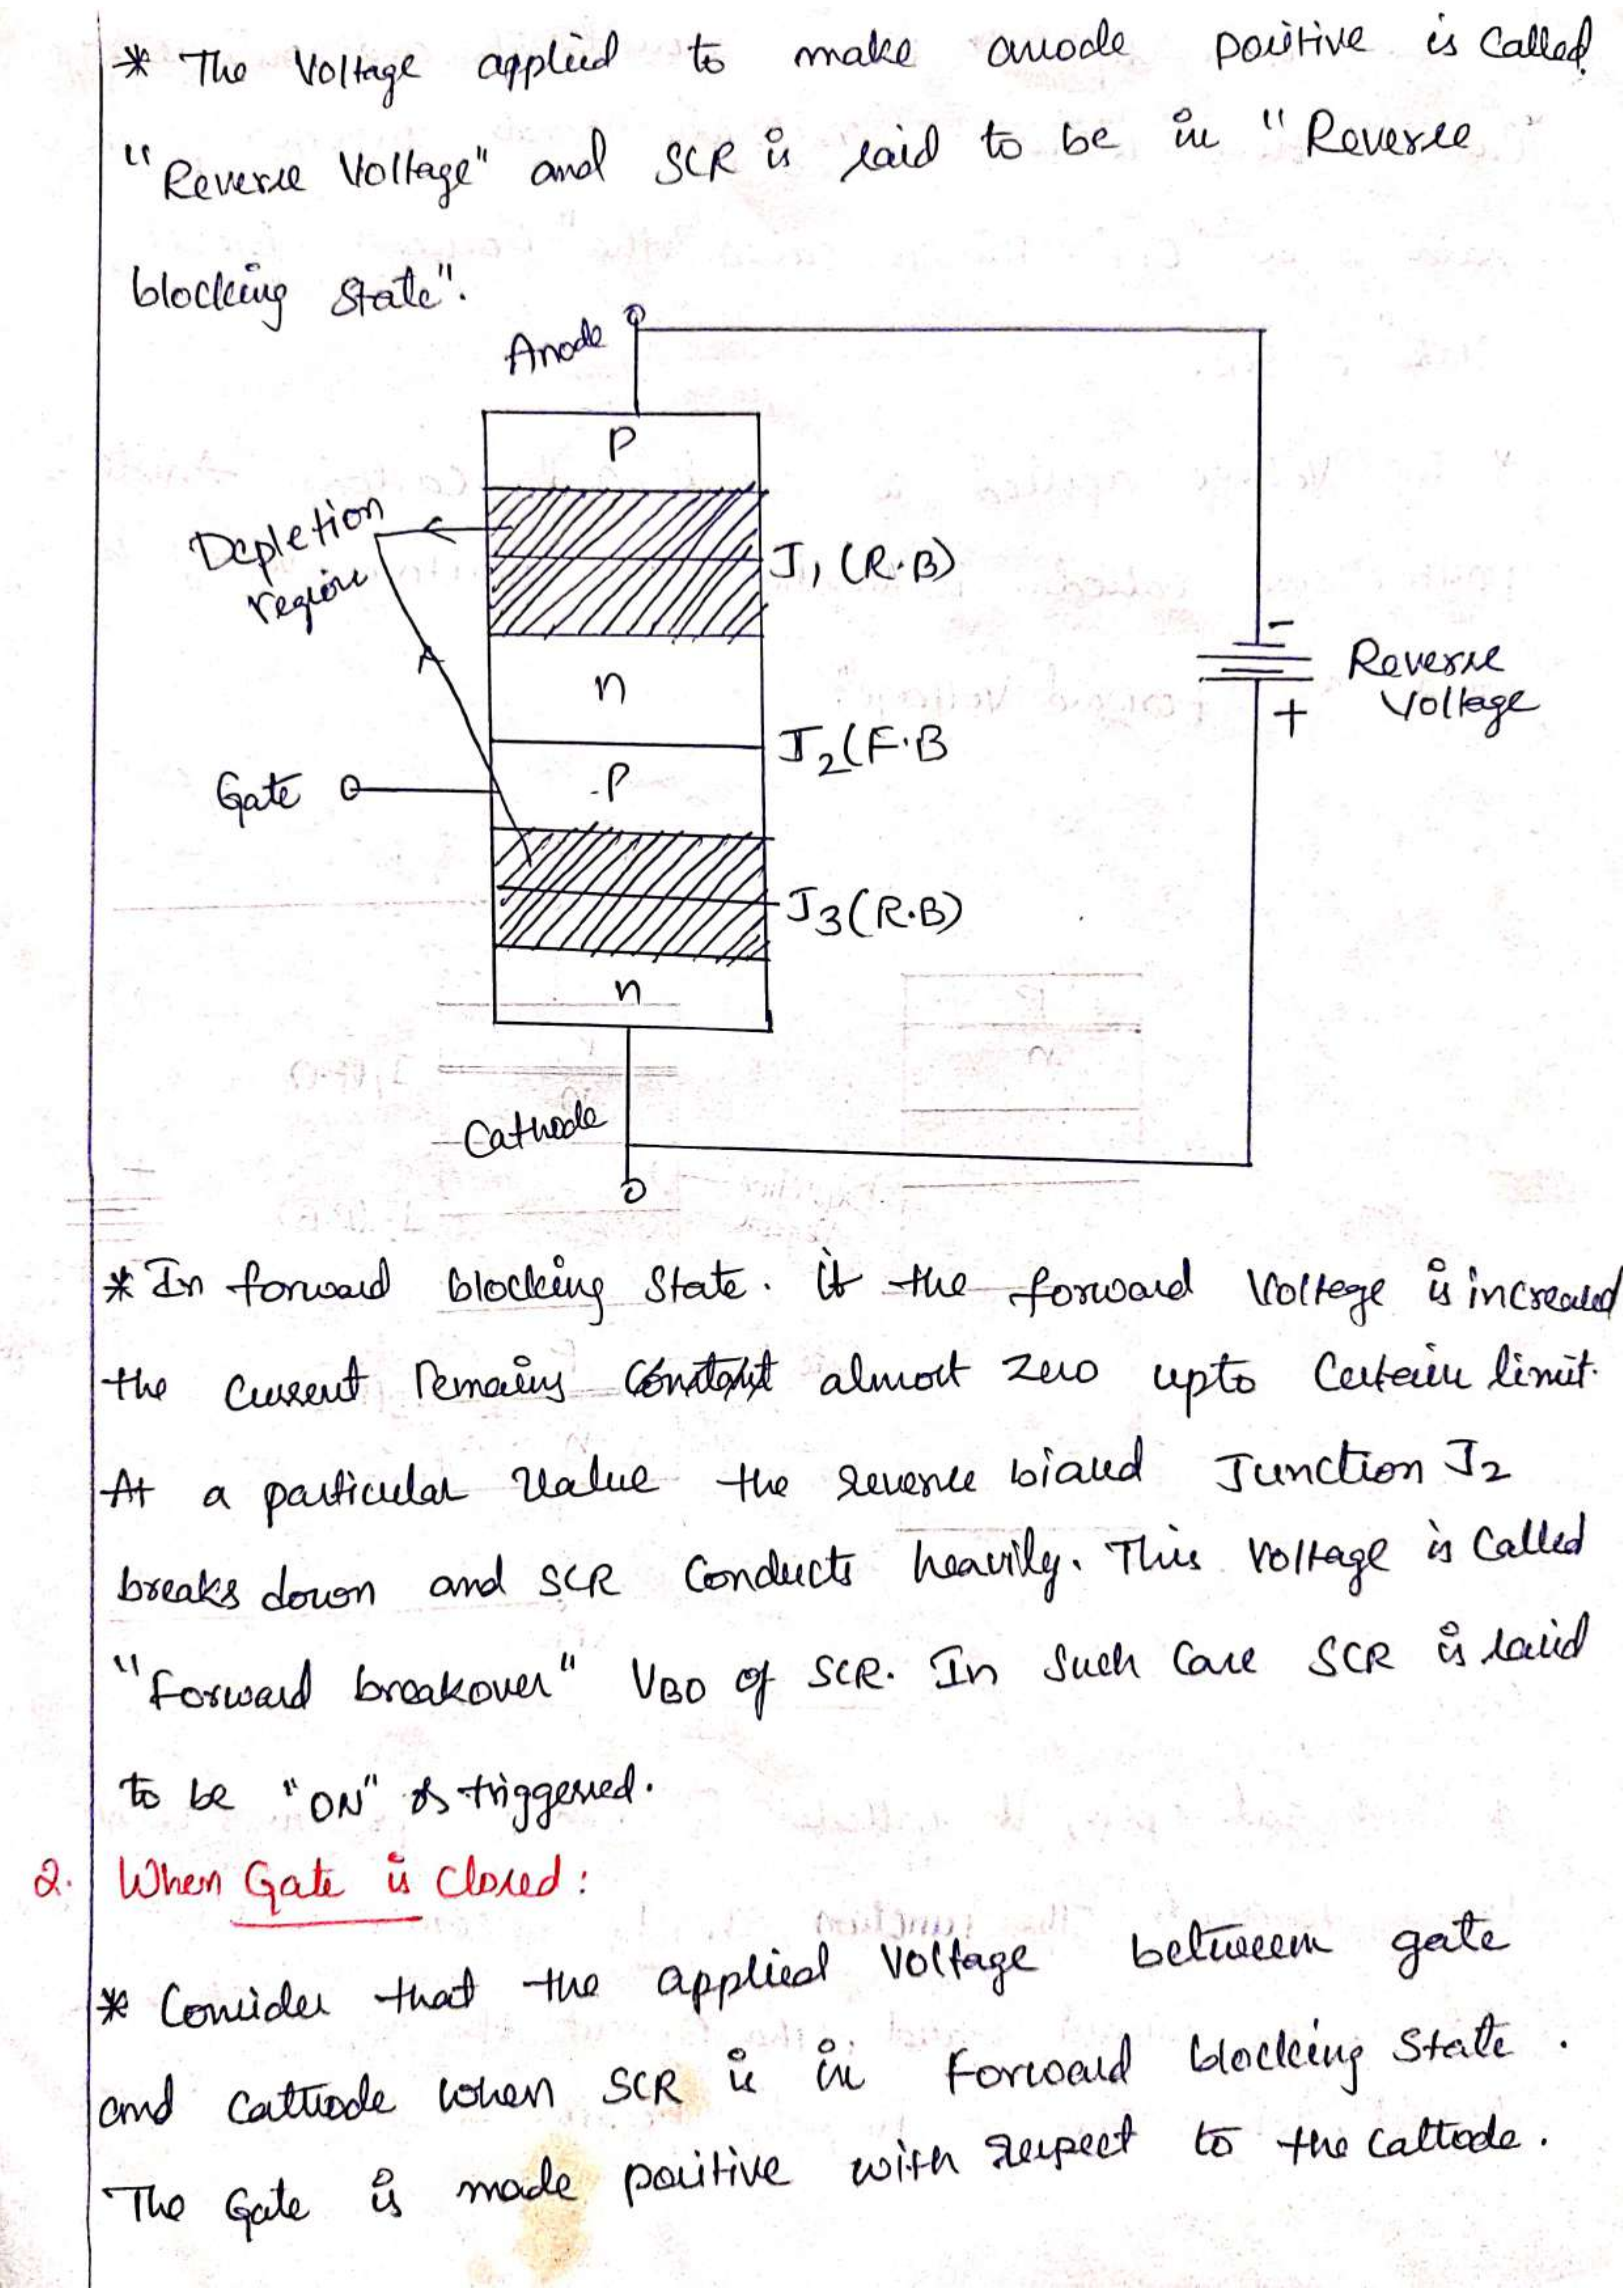 * The Voltage applied to make anode positive is Called
"Reverse Voltage" and SCR is said to be in "Reverse
blocking state".
Anode
P
Depletion
region
J1 (R.B)
-
n
Reverse
Voltage
+
J2(F.B
Gate
P
J3(R.B)
n
Cathode
* In forward blocking State. if the forward Voltage is increased
the current remains almost zero upto Certain limit.
At a particular Value the reverse biased Junction J2
breaks down and SCR Conducts heavily. This Voltage is Called
"Forward breakover" VBO of SCR. In Such Case SCR is said
to be "ON" or triggered.
2. When Gate is Closed:
* Consider that the applied Voltage between gate
and Cathode when SCR is in Forward blocking State.
The Gate is made positive with respect to the Cathode.